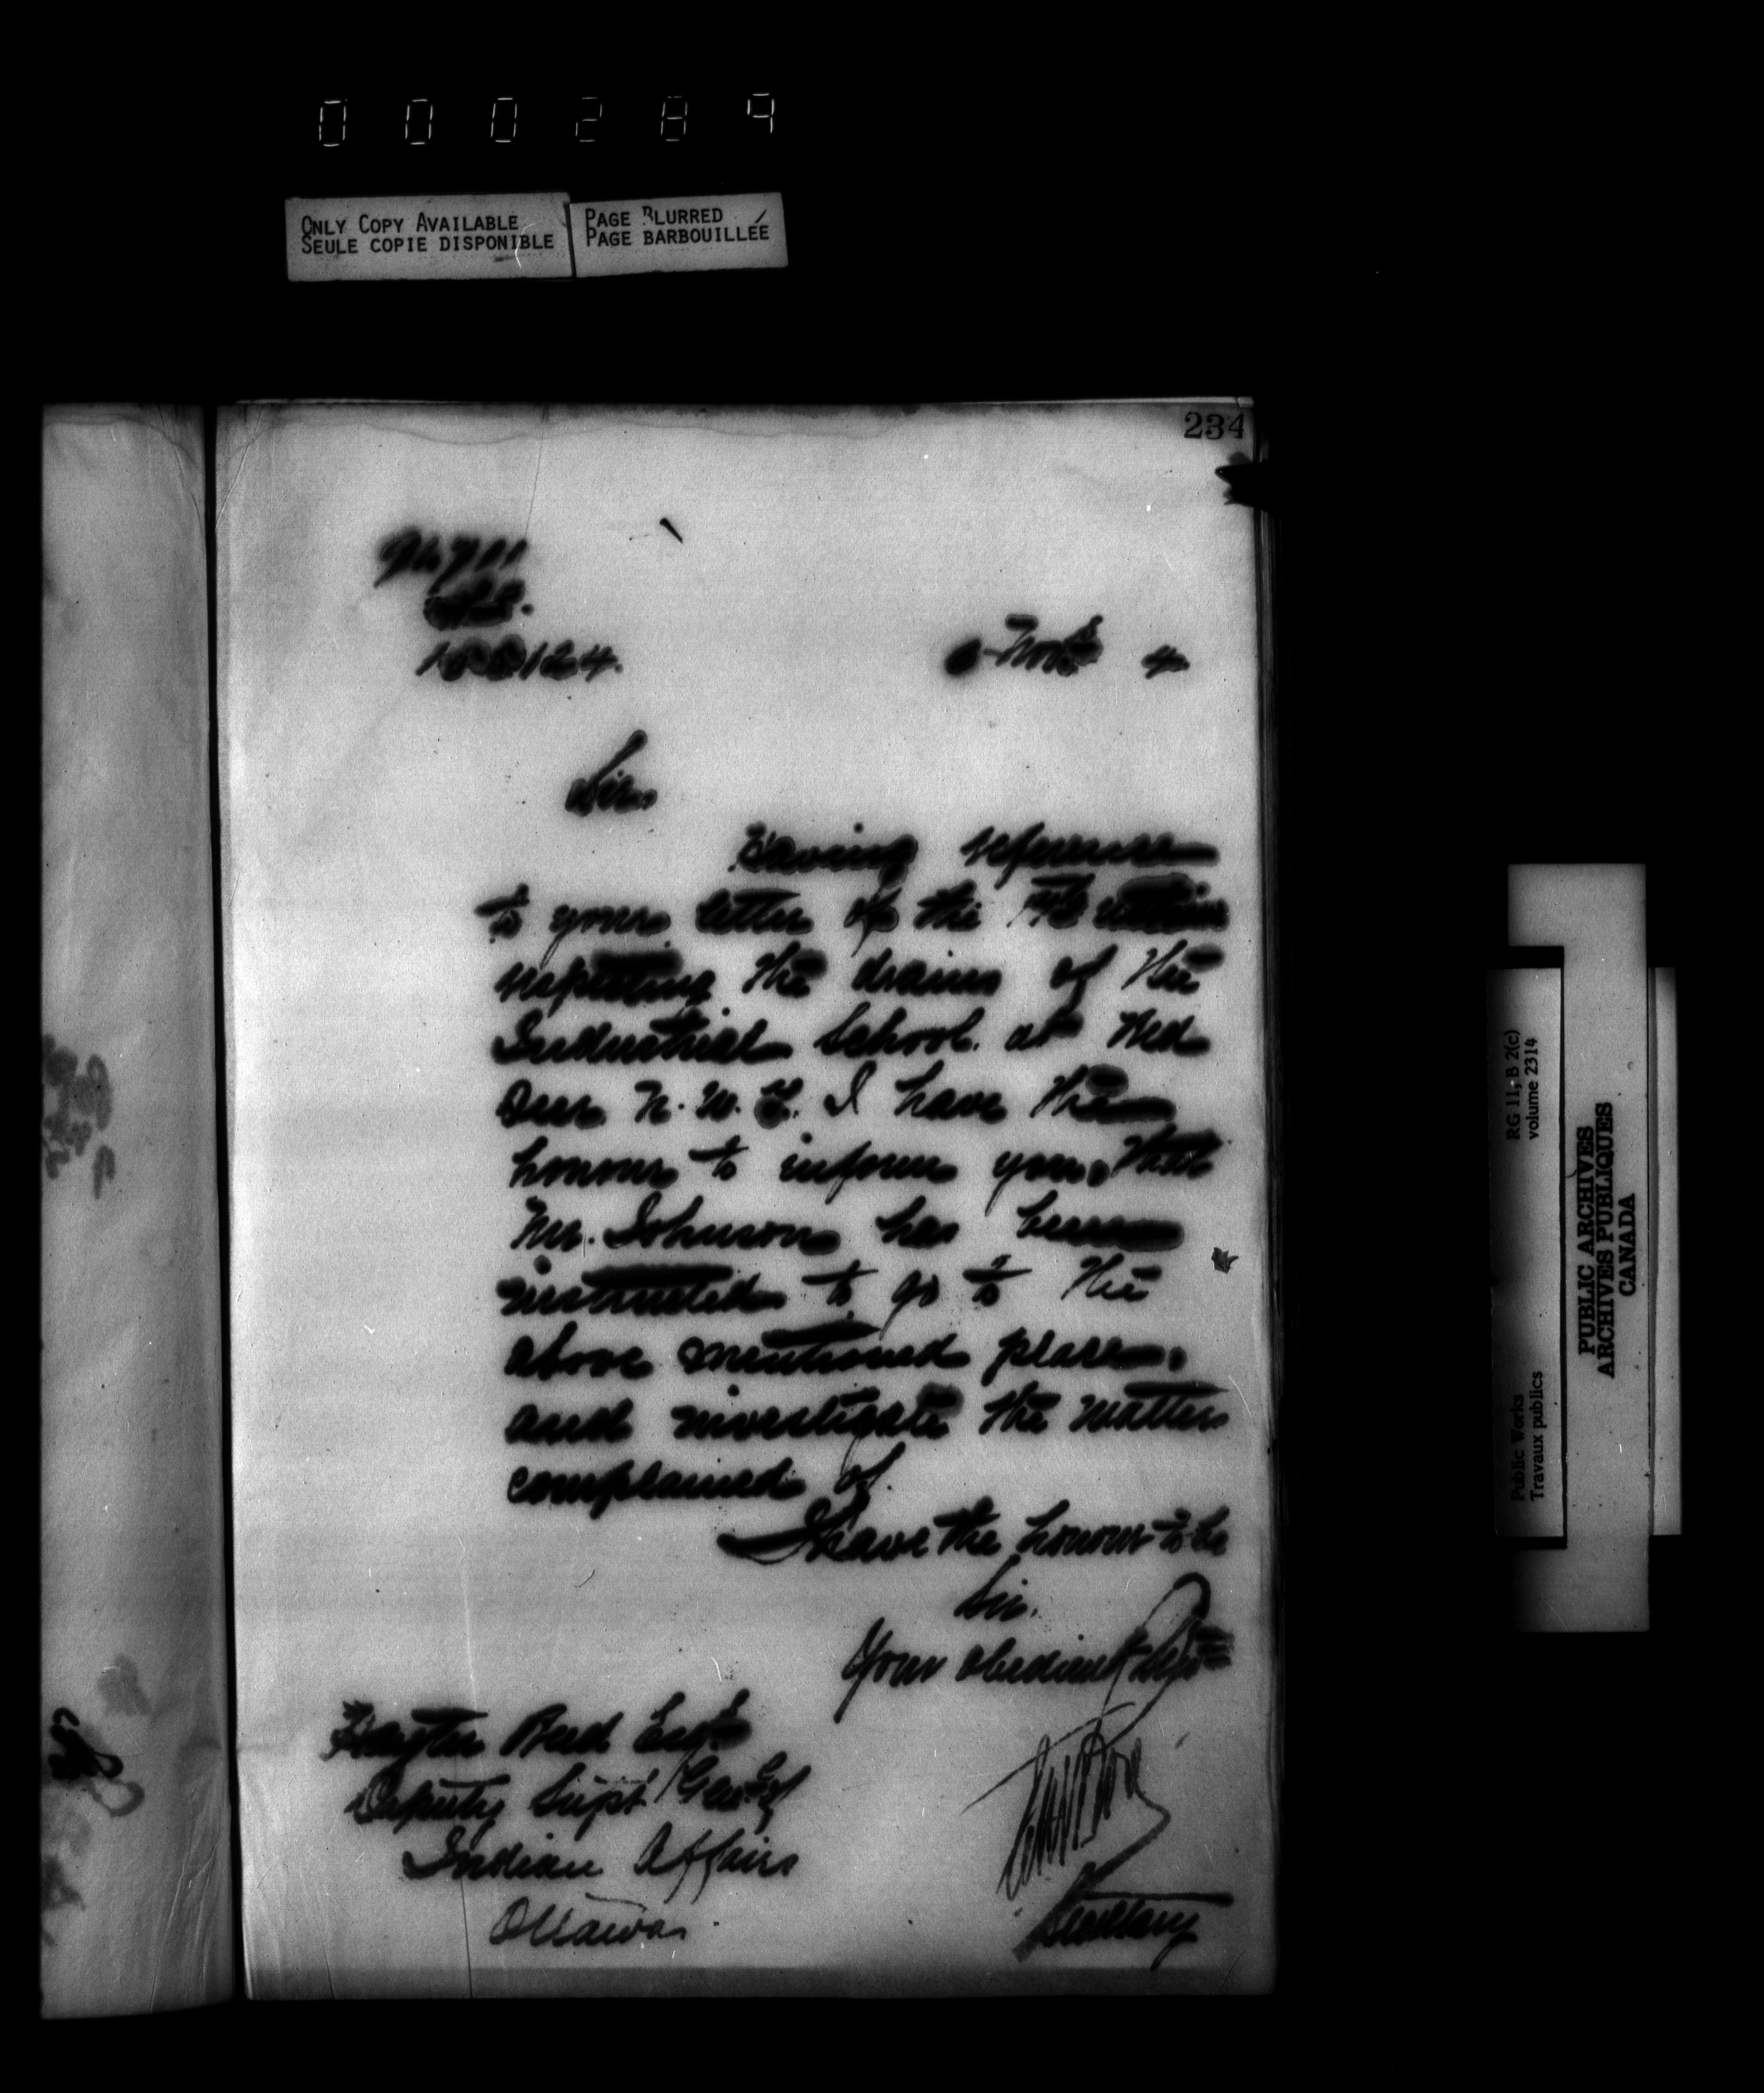 000289
ONLY COPY AVAILABLE
SEULE COPIE DISPONIBLE
PAGE BLURRED
PAGE BARBOUILLÉE
234
Nov 4
Sir,
Having reference
to your letter of the
respecting the drains of the
Industrial School at Red
Deer N.W.T. I have the
honour to inform you, that
Mr. Johnson has been
instructed to go to the
above mentioned place,
and investigate the matter
complained of.
I have the honour to be
Sir,
Your obedient
Hayter Reed Esq
Deputy Supt Gen of
Indian Affairs
Ottawa
Secretary
RG 11, B 2(c)
volume 2314
Public Works
Travaux publics
PUBLIC ARCHIVES
ARCHIVES PUBLIQUES
CANADA